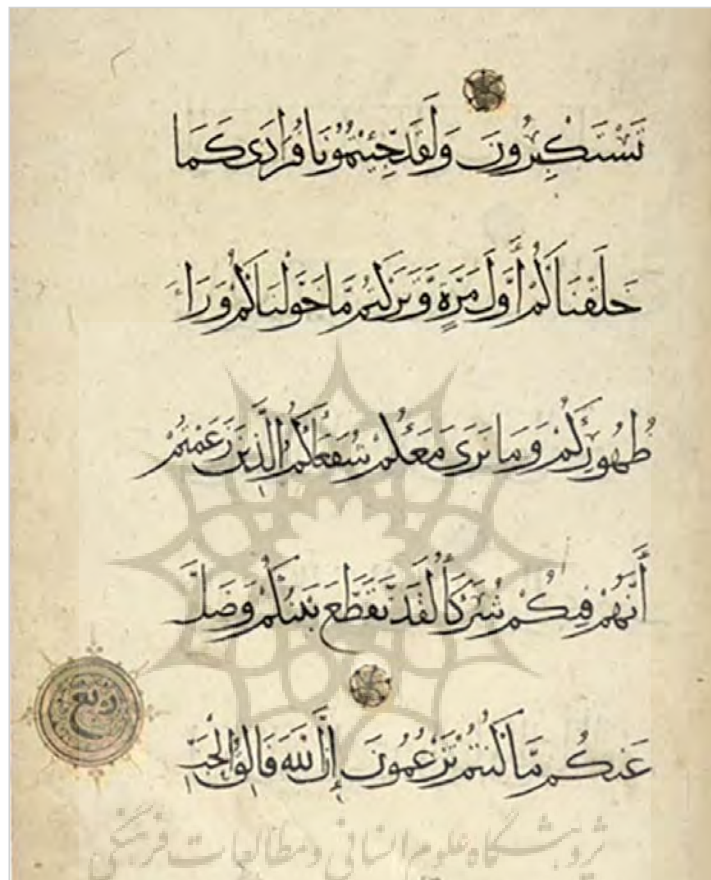 تَسْتَكْبِرُونَ وَلَقَدْ جِئْتُمُونَا فُرَادَى كَمَا
خَلَقْنَاكُمْ أَوَّلَ مَرَّةٍ وَتَرَكْتُمْ مَا خَوَّلْنَاكُمْ وَرَاءَ
ظُهُورِكُمْ وَمَا نَرَى مَعَكُمْ شُفَعَاءَكُمُ الَّذِينَ زَعَمْتُمْ
أَنَّهُمْ فِيكُمْ شُرَكَاءُ لَقَدْ تَقَطَّعَ بَيْنَكُمْ وَضَلَّ
ربع
عَنكُم مَّا كُنتُمْ تَزْعُمُونَ إِنَّ اللَّهَ فَالِقُ الْحَبِّ
پژوهشگاه علوم انسانی و مطالعات فرهنگی